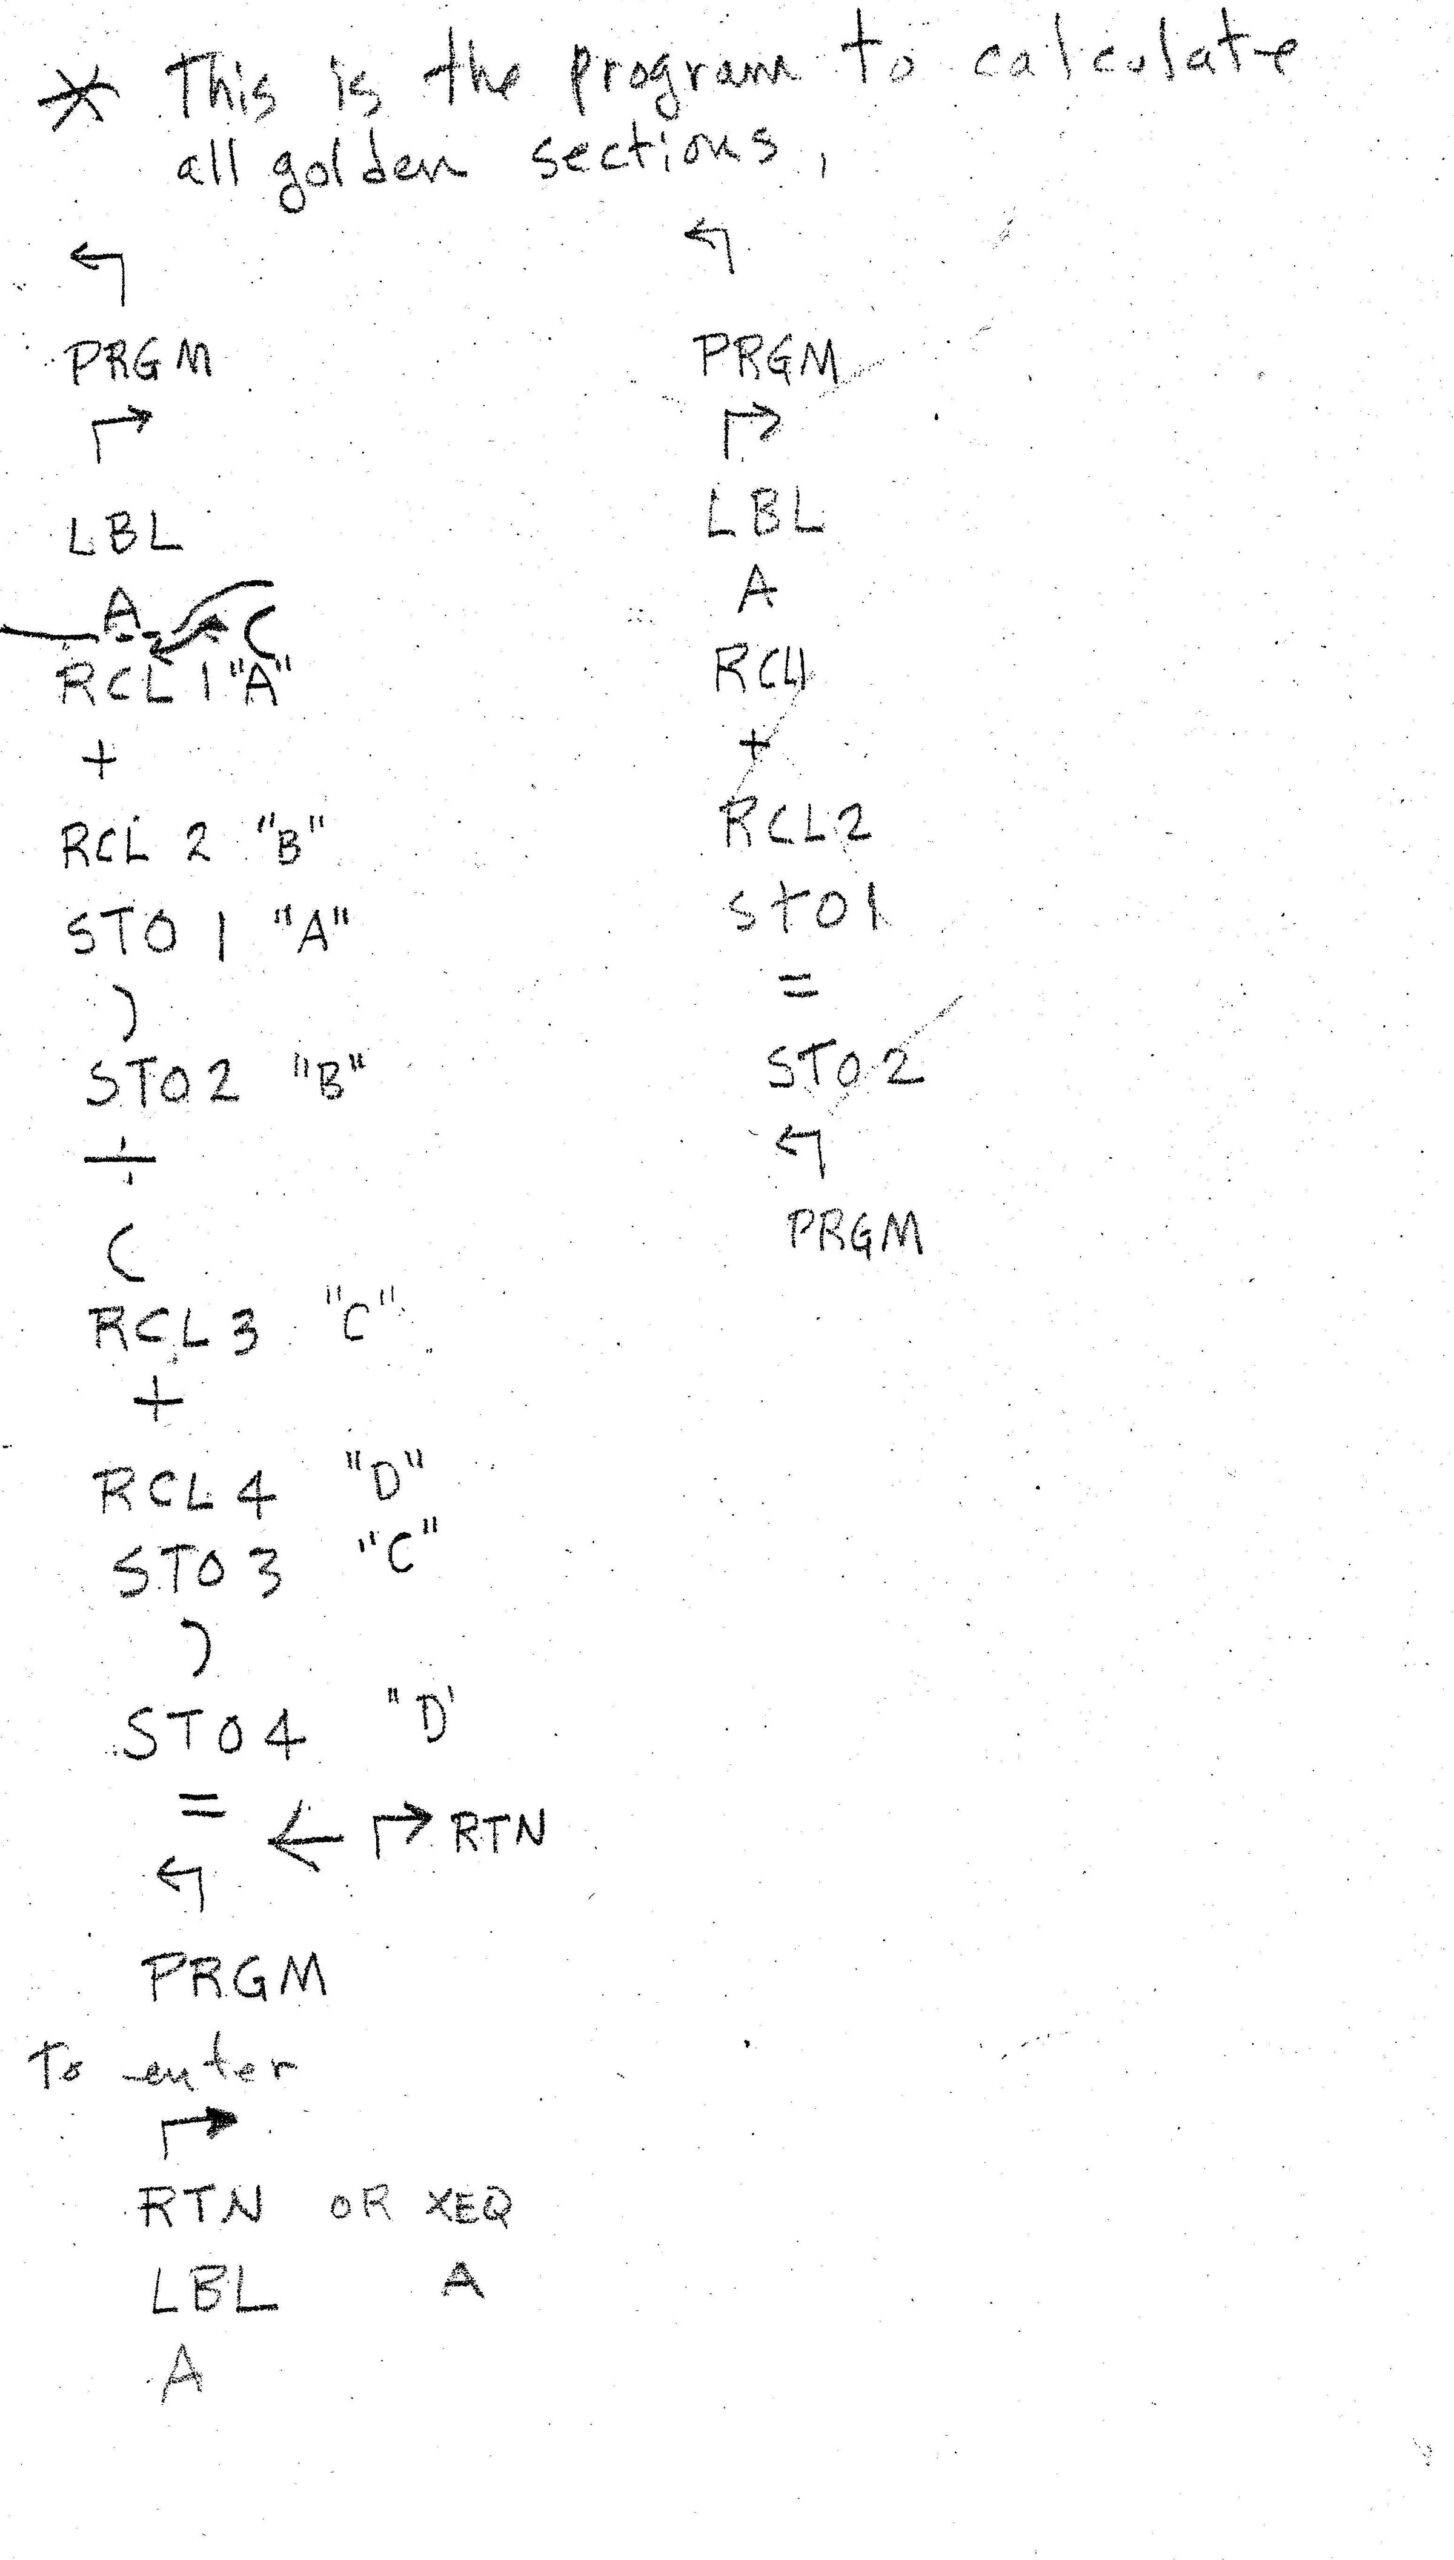 * This is the program to calculate
all golden sections,
↰
PRGM
↱
LBL
A
(
RCL 1 "A"
+
RCL 2 "B"
STO 1 "A"
)
STO2 "B"
÷
(
RCL3 "C"
+
RCL4 "D"
STO3 "C"
)
STO4 "D'
= ← ↱ RTN
↰
PRGM
To enter
↱
RTN OR XEQ
LBL A
A
↰
PRGM
↱
LBL
A
RCL1
+
RCL2
STO1
=
STO2
↰
PRGM